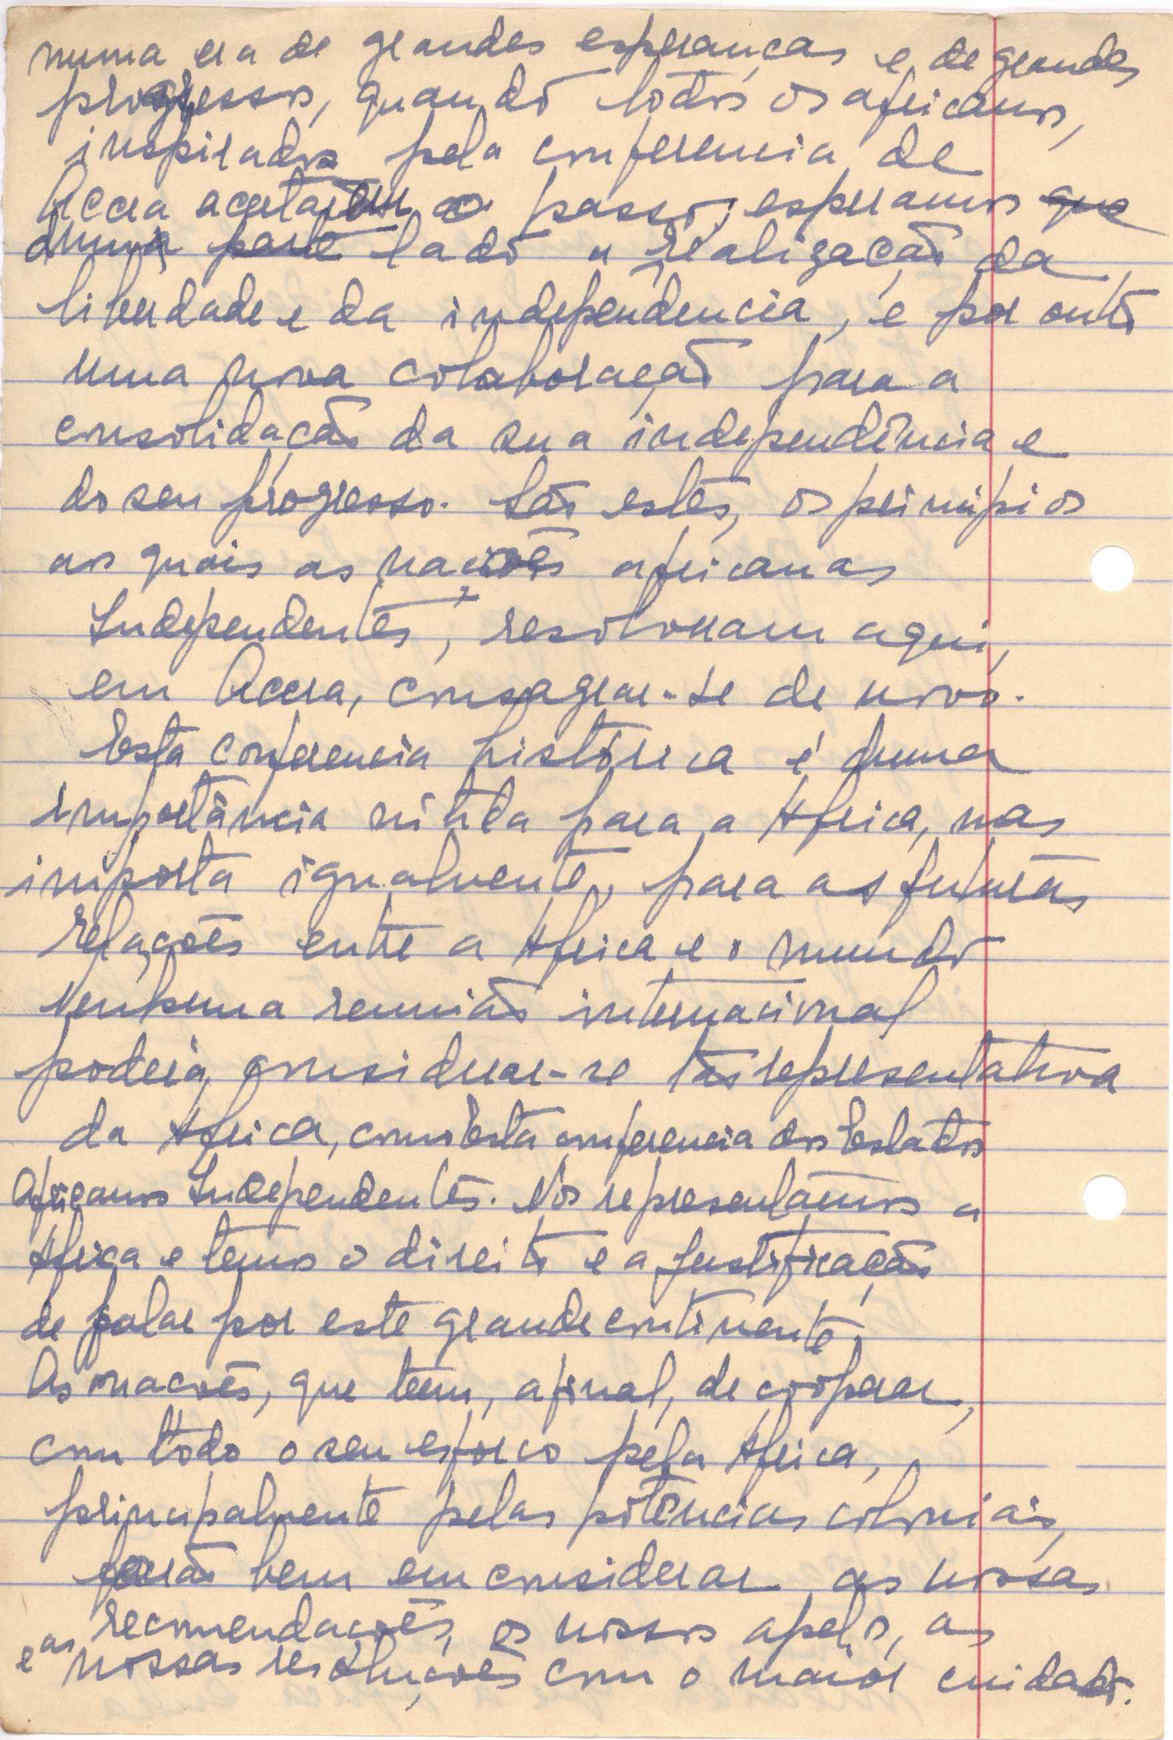 numa era de grandes esperanças e de grandes
progressos, quando todos os africanos,
inspirados pela conferencia de
Accra aceitarem o passo, esperamos que
duma parte lado a realização da
liberdade e da independencia, e por outro
uma nova colaboração para a
consolidação da sua independência e
do seu progresso. São estes, os principios
aos quais as nações africanas
Independentes, resolveram aqui,
em Accra, consagrar-se de novo.
Esta conferencia histórica é duma
importância nítida para a Africa, mas
importa igualmente, para as futuras
relações entre a Africa e o mundo
Nenhuma reunião internacional
poderia considerar-se tão representativa
da Africa, como esta conferencia dos Estados
Africanos Independentes. Nos representamos a
Africa e temos o direito e a justificação
de falar por este grande continente.
As nacões, que teem, afinal, de coóperar,
com todo o seu esforco pela Africa,
principalmente pelas potências coloniais,
farão bem em considerar as nossas
recomendacoẽs, os nossos apelos, as
e as nossas resoluções com o maior cuidado.